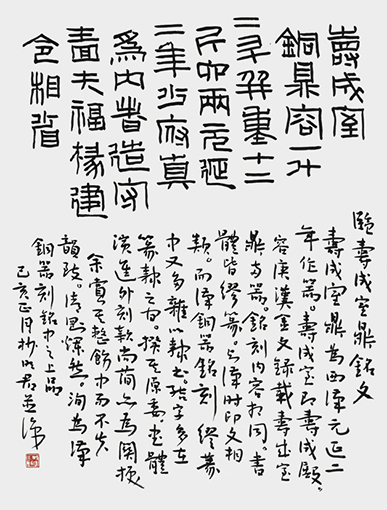 壽成室
銅鼎容一斗
二升并重十二
斤四兩元延
二年少府真
爲内者造守
嗇夫福掾建
令相省
題壽成室鼎銘文
壽成室鼎爲西漢元延二
年作器。壽成室即壽成殿。
容庚漢金文録載壽成室
鼎與器。銘刻内容相同。書
體皆繆篆。與漢時印文相
類。而漢銅器銘刻繆篆
中又多雜以隸書。故字多在
篆隸之間。揆其原委。書體
演進外刻款尚簡亦爲關捩
余賞其整飭中而不失
韻致。清 爍然洵爲漢
銅器刻銘中之上品
己亥正月抄 並識